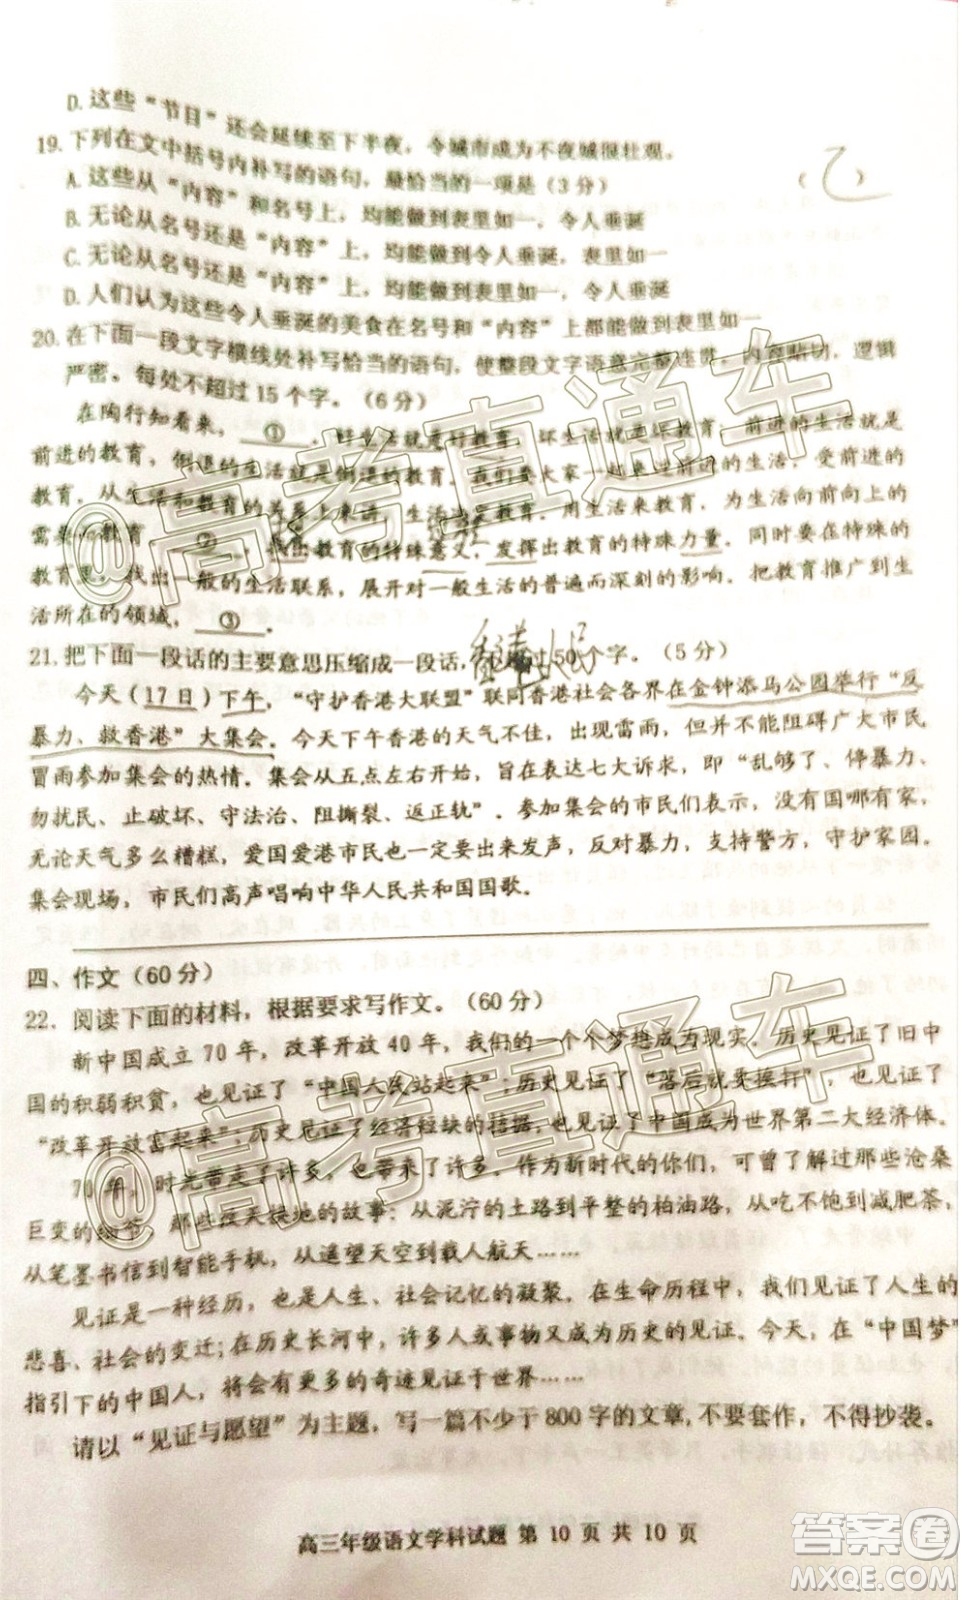 D. 这些“节目”还会延续至下半夜，令城市成为不夜城很壮观。
19. 下列在文中括号内补写的语句，最恰当的一项是（3 分） （ ）
A. 这些从“内容”和名号上，均能做到表里如一，令人垂涎
B. 无论从名号还是“内容”上，均能做到表里如一，令人垂涎
C. 无论从名号还是“内容”上，均能做到令人垂涎，表里如一
D. 人们认为这些令人垂涎的美食在名号和“内容”上都能做到表里如一
20. 在下面一段文字横线处补写恰当的语句，使整段文字语意完整连贯，内容贴切，逻辑
严密。每处不超过 15 个字。（6 分）
在陶行知看来，①。好生活就是好教育，坏生活就是坏教育；前进的生活就是
前进的教育，倒退的生活就是倒退的教育。我们要大家一起过前进的生活，受前进的
教育。从生活和教育的关系上来讲，生活决定教育。用生活来教育，为生活向前向上的
需要而教育，②，找出教育的特殊意义，发挥出教育的特殊力量。同时要在特殊的
教育里，找出一般的生活联系，展开对一般生活的普遍而深刻的影响。把教育推广到生
活所在的领域，③。
21. 把下面一段话的主要意思压缩成一段话，不超过 50 个字。（5 分）
今天（17 日）下午，“守护香港大联盟”联同香港社会各界在金钟添马公园举行“反
暴力、救香港”大集会。今天下午香港的天气不佳，但突如其来的雨，并不能阻碍广大市民
冒雨参加集会的热情。集会从五点左右开始，旨在表达七大诉求，即“乱够了、停暴力、
勿扰民、止破坏、守法治、阻撕裂、返正轨”。参加集会的市民们表示，没有国哪有家，
无论天气多么糟糕，爱国爱港市民也一定要出来发声，反对暴力，支持警方，守护家园。
集会现场，市民们高声唱响中华人民共和国国歌。
四、作文（60 分）
22. 阅读下面的材料，根据要求写作文。（60 分）
新中国成立 70 年，改革开放 40 年，我们的一个个梦想成为现实。历史见证了旧中
国的积弱积贫，也见证了“中国人民站起来”；历史见证了“落后就要挨打”，也见证了
“改革开放富起来”；历史见证了经济短缺的拮据，也见证了中国成为世界第二大经济体。
70 年，时光带走了许多，也带来了许多。作为新时代的你，可曾了解过那些沧桑
巨变的细节，那些改天换地的故事：从泥泞的土路到平整的柏油路，从吃不饱到减肥茶，
从笔墨书信到智能手机，从遥望天空到载人航天……
见证是一种经历，也是人生、社会记忆的凝聚。在生命历程中，我们见证了人生的
悲喜、社会的变迁；在历史长河中，许多人或事物又成为历史的见证。今天，在“中国梦”
指引下的中国人，将会有更多的奇迹见证于世界……
请以“见证与愿望”为主题，写一篇不少于 800 字的文章，不要套作，不得抄袭。
高三年级语文学科试题 第 10 页 共 10 页
@高考直通车
@高考直通车
答案圈
MXQE.COM